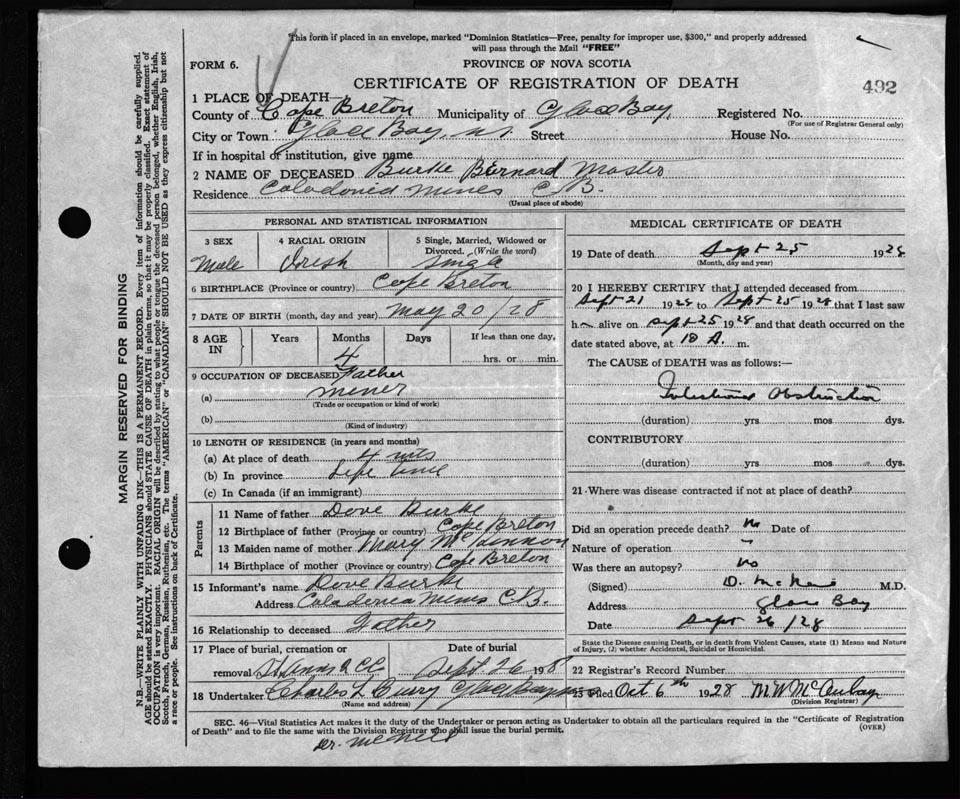 This form if placed in an envelope, marked "Dominion Statistics—Free, penalty for improper use, $300," and properly addressed
will pass through the Mail "FREE"
FORM 6.
PROVINCE OF NOVA SCOTIA
CERTIFICATE OF REGISTRATION OF DEATH
492
1 PLACE OF DEATH—
County of Cape Breton Municipality of Glace Bay Registered No.
(For use of Registrar General only)
City or Town Glace Bay N.S. Street House No.
If in hospital or institution, give name
2 NAME OF DECEASED Burke Bernard Master
Residence Caledonia Mines C.B.
(Usual place of abode)
PERSONAL AND STATISTICAL INFORMATION
3 SEX
Male
4 RACIAL ORIGIN
Irish
5 Single, Married, Widowed or
Divorced. (Write the word)
Single
6 BIRTHPLACE (Province or country) Cape Breton
7 DATE OF BIRTH (month, day and year) May 20/28
8 AGE IN
Years Months Days If less than one day,
4 hrs. or min.
9 OCCUPATION OF DECEASED Father
(a) miner
(Trade or occupation or kind of work)
(b)
(Kind of industry)
10 LENGTH OF RESIDENCE (in years and months)
(a) At place of death 4 mts
(b) In province Life time
(c) In Canada (if an immigrant)
Parents
11 Name of father Dove Burke
12 Birthplace of father (Province or country) Cape Breton
13 Maiden name of mother Mary McKinnon
14 Birthplace of mother (Province or country) Cape Breton
15 Informant's name Dove Burke
Address Caledonia Mines C.B.
16 Relationship to deceased Father
17 Place of burial, cremation or
removal
Date of burial
Sept 26 1928
18 Undertaker Charles L Curry Glace Bay
(Name and address)
MEDICAL CERTIFICATE OF DEATH
19 Date of death Sept 25 1928
(Month, day and year)
20 I HEREBY CERTIFY that I attended deceased from
Sept 21 1928 to Sept 25 1928 that I last saw
h m alive on Sept 25 1928 and that death occurred on the
date stated above, at 10 A. m.
The CAUSE of DEATH was as follows:—
Intestinal Obstruction
(duration) yrs mos dys.
CONTRIBUTORY
(duration) yrs mos dys.
21 Where was disease contracted if not at place of death?
Did an operation precede death? no Date of
Nature of operation
Was there an autopsy? no
(Signed) D. McNeil M.D.
Address Glace Bay
Date Sept 26/28
State the Disease causing Death, or in death from Violent Causes, state (1) Means and Nature
of Injury, (2) whether Accidental, Suicidal or Homicidal.
22 Registrar's Record Number
23 Filed Oct 6th 1928
(Division Registrar)
SEC. 46—Vital Statistics Act makes it the duty of the Undertaker or person acting as Undertaker to obtain all the particulars required in the "Certificate of Registration
of Death" and to file the same with the Division Registrar who shall issue the burial permit.
(OVER)
Dr. McNeil
MARGIN RESERVED FOR BINDING
N.B.—WRITE PLAINLY WITH UNFADING INK—THIS IS A PERMANENT RECORD. Every item of information should be carefully supplied.
AGE should be stated EXACTLY. PHYSICIANS should STATE CAUSE OF DEATH in plain terms, so that it may be properly classified. Exact statement of
OCCUPATION is very important. RACIAL ORIGIN will be described by stating to what people or tongue the deceased person belonged, whether English, Irish,
Scotch, French, German, Russian, Ruthenian, etc. The terms "AMERICAN" or "CANADIAN" SHOULD NOT BE USED as they express citizenship but not
a race or people. See instructions on back of Certificate.